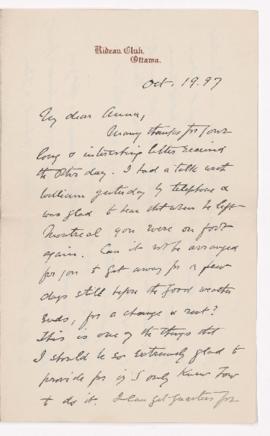 Rideau Club,
Ottawa.
Oct. 19. 97
My dear Anna,
Many thanks for your
long & interesting letter received
the other day. I had a talk with
William yesterday by telephone &
was glad to hear that when he left
Montreal you were on foot
again. Can it not be arranged
for you to get away for a few
days still before the good weather
ends, for a change & rest?
This is one of the things that
I should be so extremely glad to
provide for if I only knew how
to do it. I can get quarters for